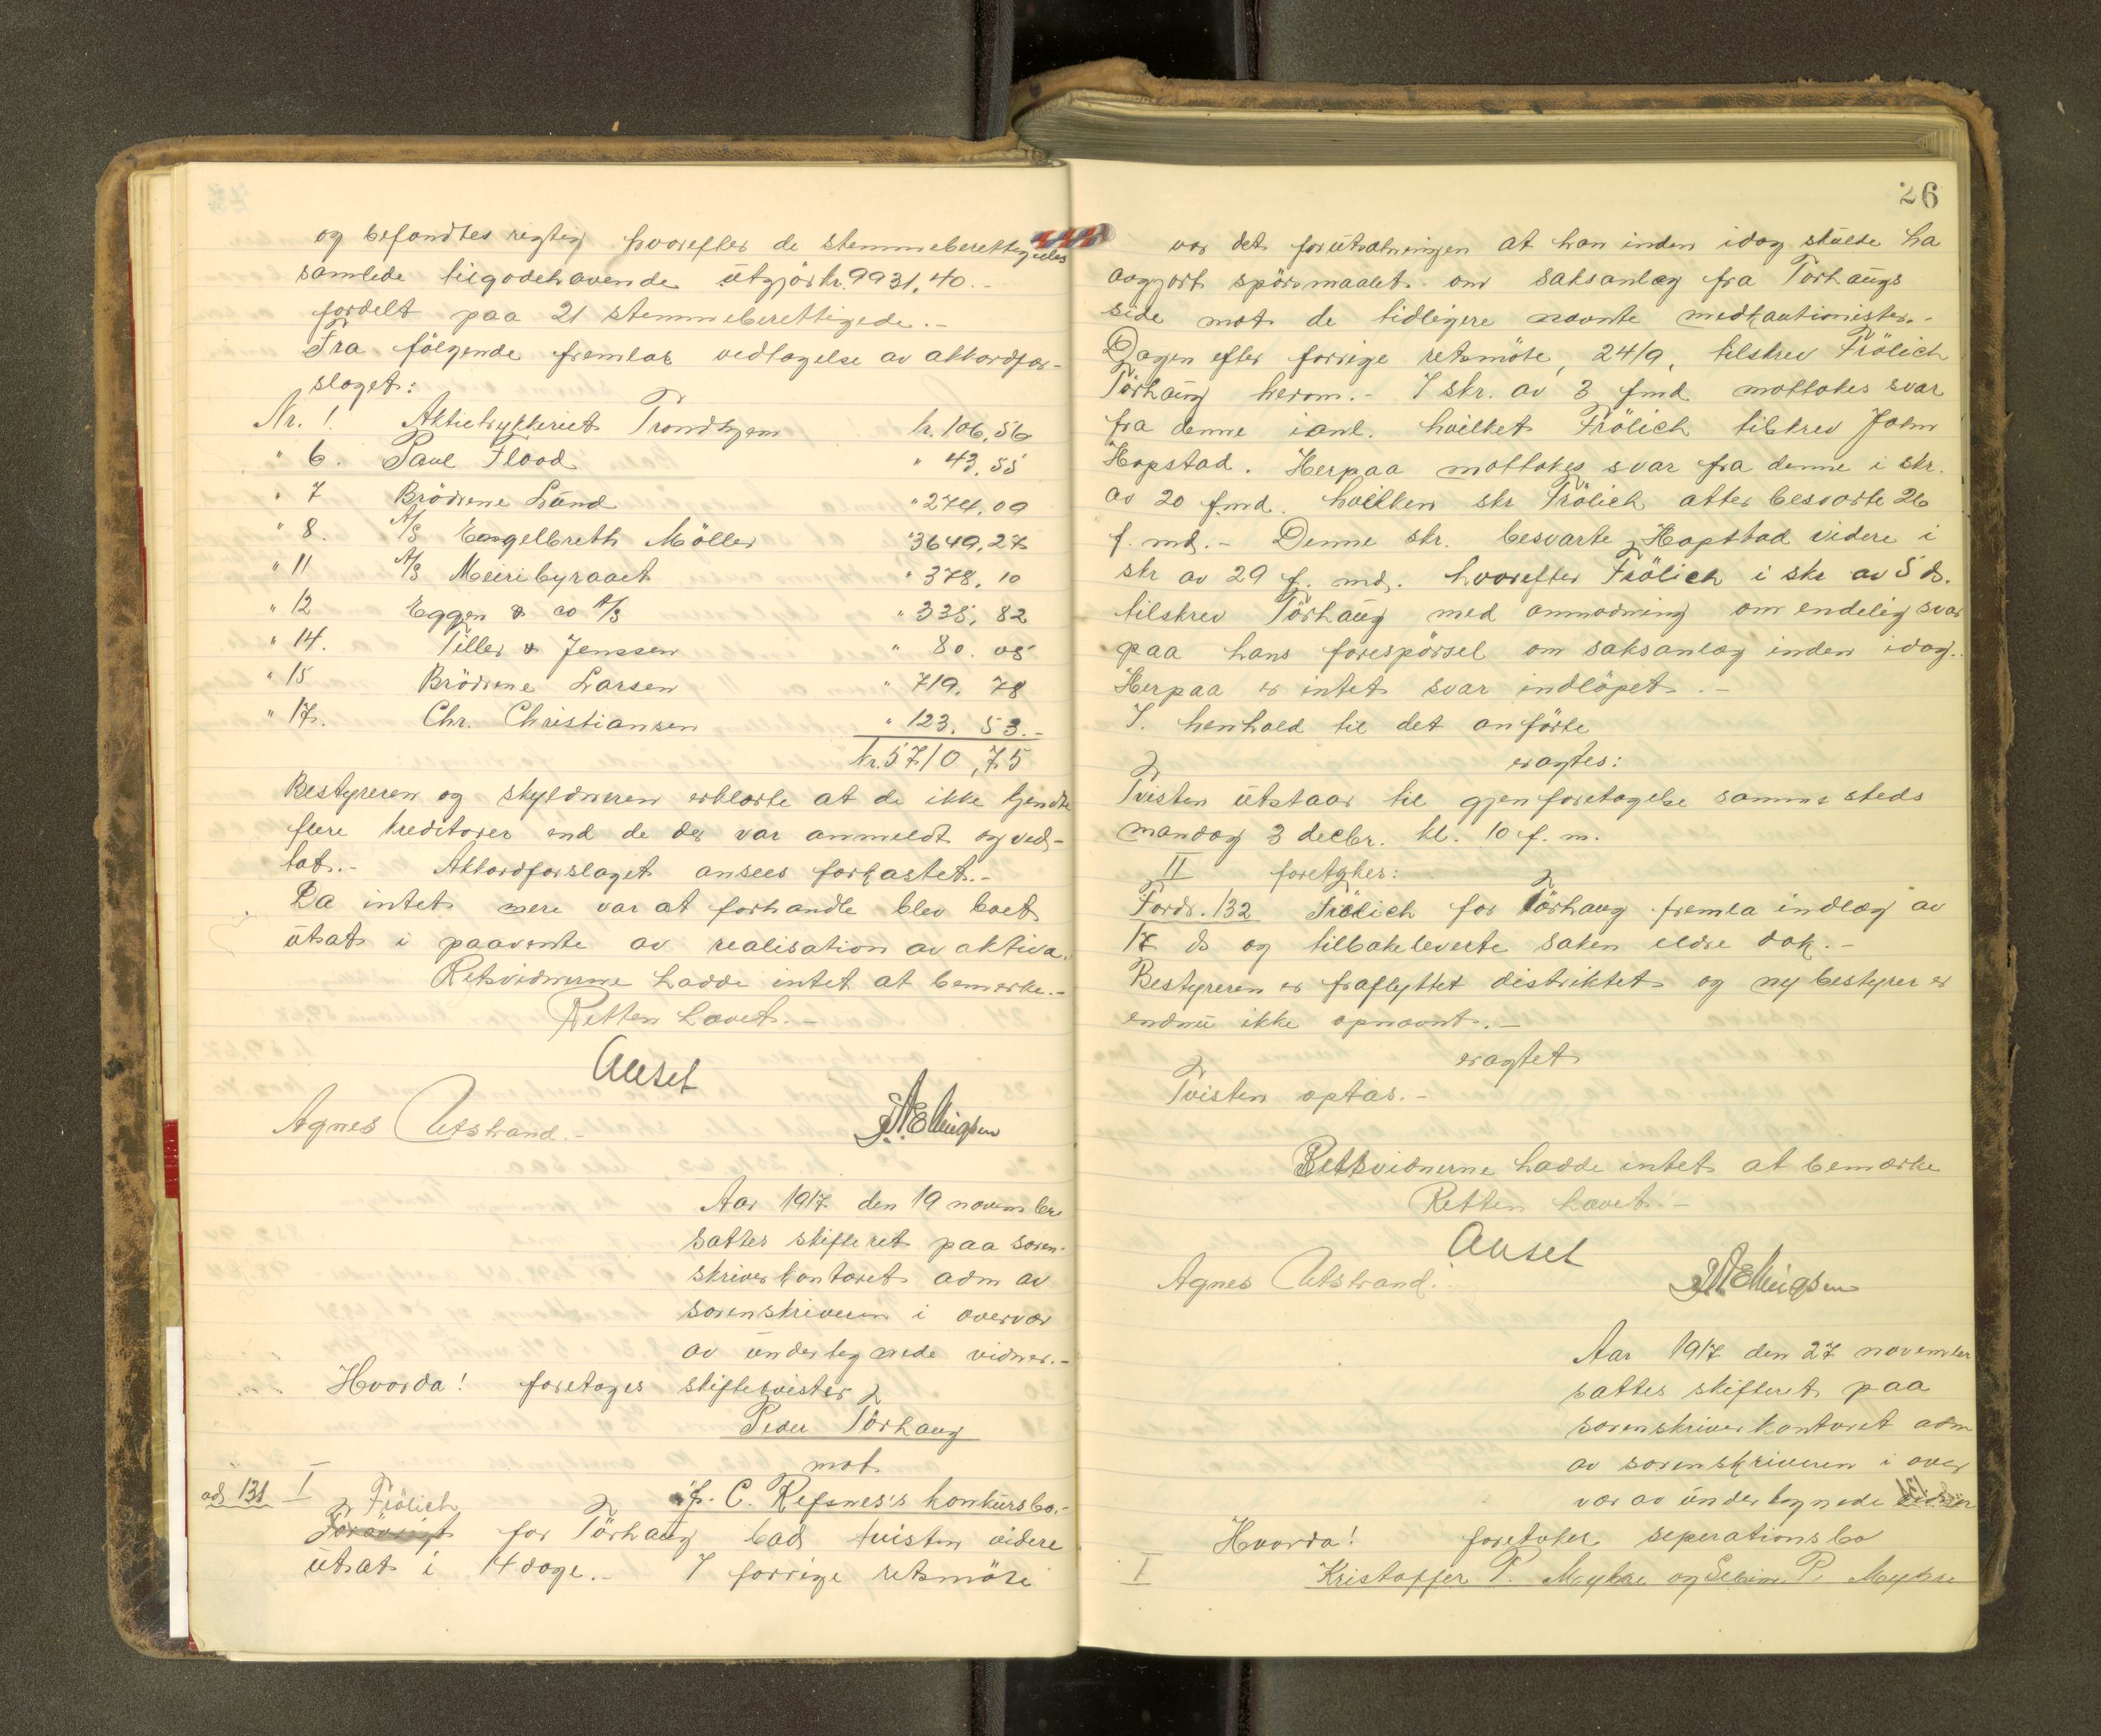 og befandtes regtig hvorefter de stemmeberettigedes
samlede tilgodehavende utgjör kr. 9931,40.-
fordelt paa 21 stemmeberettigede.-
Fra fölgende fremlaa vedtagelse av akkordfor-
slaget:
Nr. 1. Aktietrykkeriet Trondhjem kr. 106,56
" 6. Paul Flood " 43,55
" 7 Brödrene Lund " 274,09
" 8. A/S Engelbreth Möller " 3649,27
" 11 A/S Meieribyraaet " 378,10
" 12 Eggen & co A/S " 335,82
" 14. Tiller & Jenssen " 80.05
" 15 Brödrene Larsen " 719,78
" 17. Chr. Christiansen " 123,53.-
kr. 5710,75
Bestyreren og skyldneren erklærte at de ikke kjendte
flere kreditorer end de der var anmeldt og ved-
tat.- Akkordforslaget ansees forkastet.-
Da intet mere var at forhandle blev boet
utsat i paavente av realisation av aktiva.
Retsvidnerne hadde intet at bemerke.-
Retten hævet.-
Ausel
Agnes Utstrand.- Ellingsen
Aar 1917 den 19 november
sattes skifteret paa soren-
skriverkontoret adm av
sorenskriveren i overvær
av undertegnede vidner.-
Hvorda! foretoges skiftetvister
Peder Törhaug
mot
C. Refsnes's konkursbo.-
ad 131 I Frölich
for Törhaug bad tvisten videre
utsat i 14 dage.- I forrige retsmöte
26
var det forutsetningen at han inden idag skulde ha
avgjort spörsmaalet om saksanlæg fra Törhaugs
side mot de tidligere nævnte medkautionister.-
Dagen efter forrige retsmöte, 24/9, tilskrev Frölich
Törhaug herom.- I skr. av 3 f.md. mottokes svar
fra denne i anl. hvilket Frölich tilskrev John
Hopstad. Herpaa mottokes svar fra denne i skr.
av 20 f.md. hvilken skr Frölich atter besvarte 26
f. md.- Denne skr. besvarte Hopstad videre i
skr av 29 f. md. hvorefter Frölich i skr av 5 ds.
tilskrev Törhaug med anmodning om endelig svar
paa hans forespörsel om saksanlæg inden idag.
Herpaa er intet svar indlöpet.-
I henhold til det anförte
eragtes:
Tvisten utstaar til gjenforetagelse samme steds
mandag 3 decbr. kl. 10 f. m.
II foretokes:
Fordr. 132 Frölich for Törhaug fremla indlæg av
17 ds og tilbakeleverte saken eldre dok.-
Bestyreren er fraflyttet distriktet og ny bestyrer er
endnu ikke opnævnt.-
eragtet
Tvisten optas.-
Retsvidnerne hadde intet at bemærke
Retten hævet.-
Ausel
Agnes Utstrand. Ellingsen
Aar 1917 den 27 november
sattes skifteret paa
sorenskriverkontoret adm
av sorenskriveren i over
vær av undertegnede vidner
Hvorda! foretokes seperationsbo
I Kristoffer P. Myhre og P. Myhre